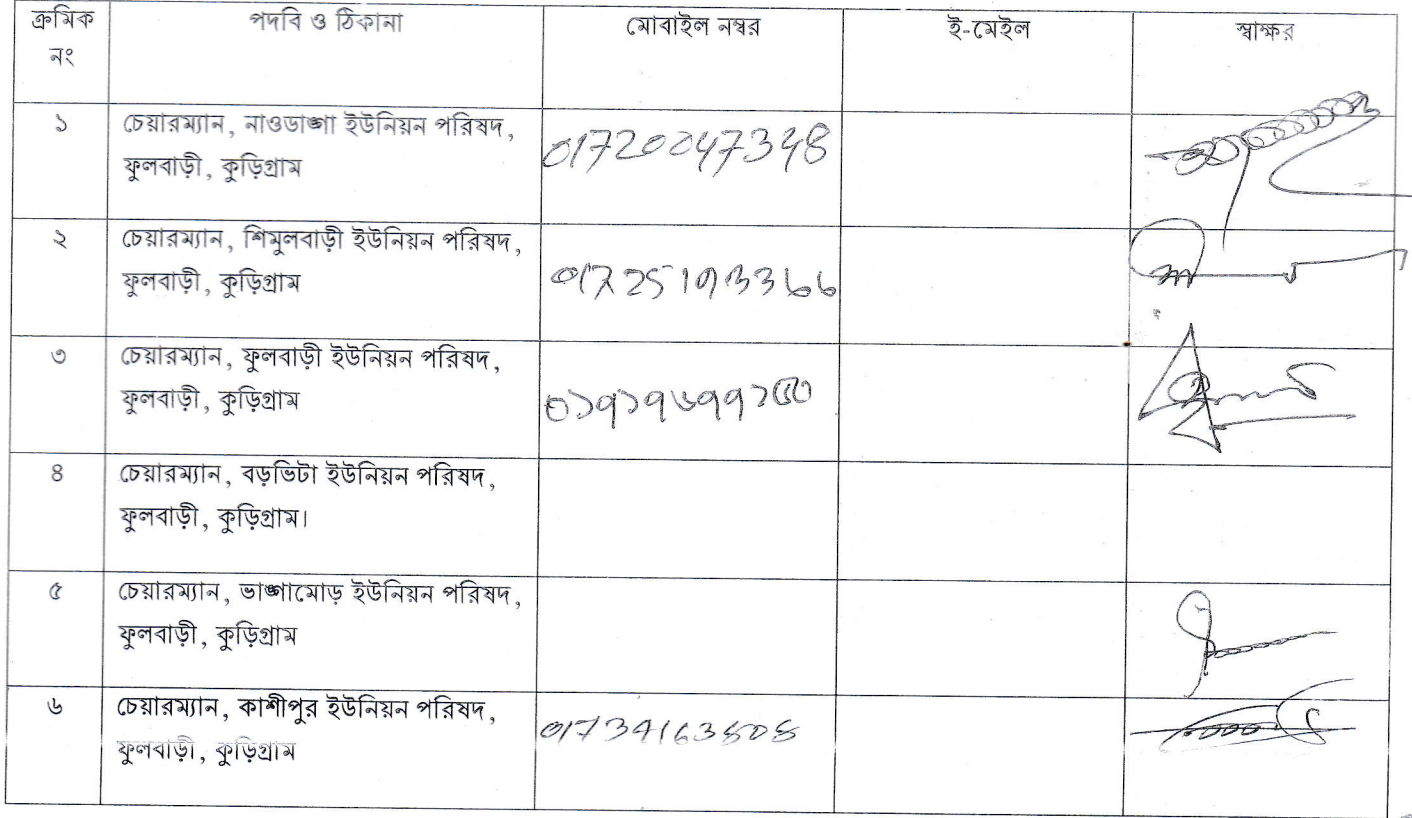 ক্রমিক নং পদবি ও ঠিকানা মোবাইল নম্বর ই-মেইল স্বাক্ষর
১ চেয়ারম্যান, নাওডাঙ্গা ইউনিয়ন পরিষদ,
ফুলবাড়ী, কুড়িগ্রাম 01720047348
২ চেয়ারম্যান, শিমুলবাড়ী ইউনিয়ন পরিষদ,
ফুলবাড়ী, কুড়িগ্রাম
৩ চেয়ারম্যান, ফুলবাড়ী ইউনিয়ন পরিষদ,
ফুলবাড়ী, কুড়িগ্রাম
৪ চেয়ারম্যান, বড়ভিটা ইউনিয়ন পরিষদ,
ফুলবাড়ী, কুড়িগ্রাম।
৫ চেয়ারম্যান, ভাঙ্গামোড় ইউনিয়ন পরিষদ,
ফুলবাড়ী, কুড়িগ্রাম
৬ চেয়ারম্যান, কাশীপুর ইউনিয়ন পরিষদ,
ফুলবাড়ী, কুড়িগ্রাম